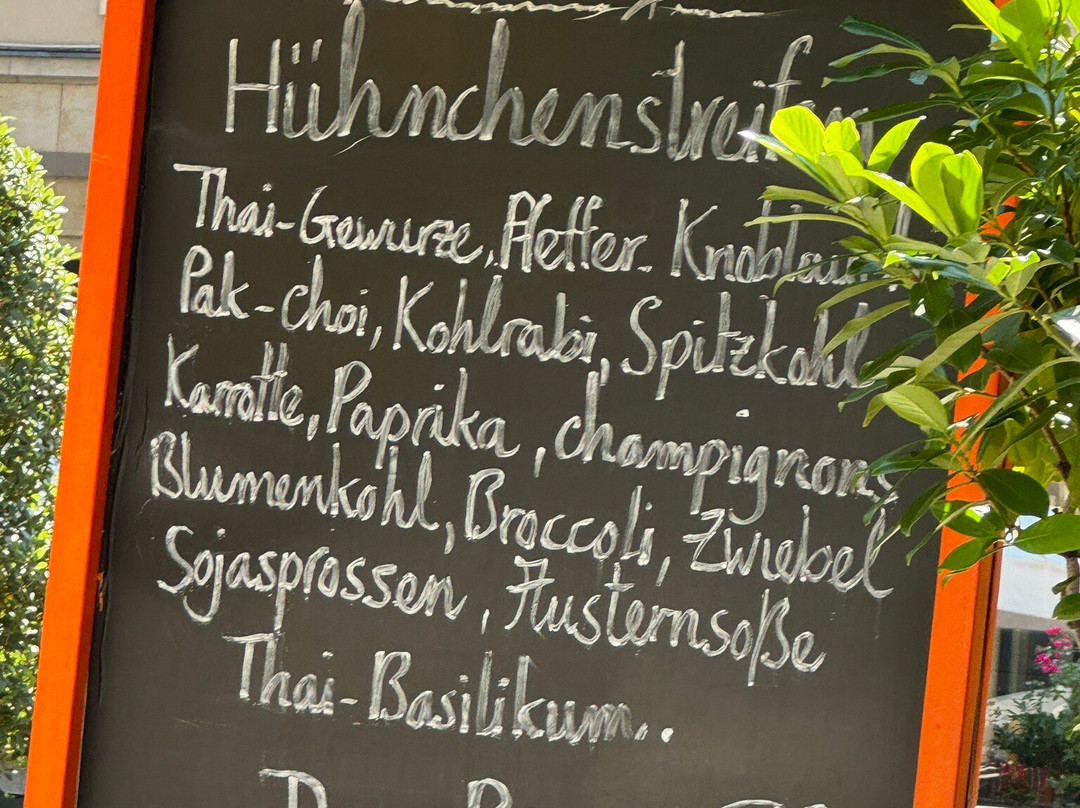 Hühnchenstreifen
Thai-Gewürze, Pfeffer. Knoblauch,
Pak-choi, Kohlrabi, Spitzkohl
Karrotte, Paprika, champignons
Blumenkohl, Broccoli, Zwiebel
Sojasprossen, Austernsoße
Thai-Basilikum..